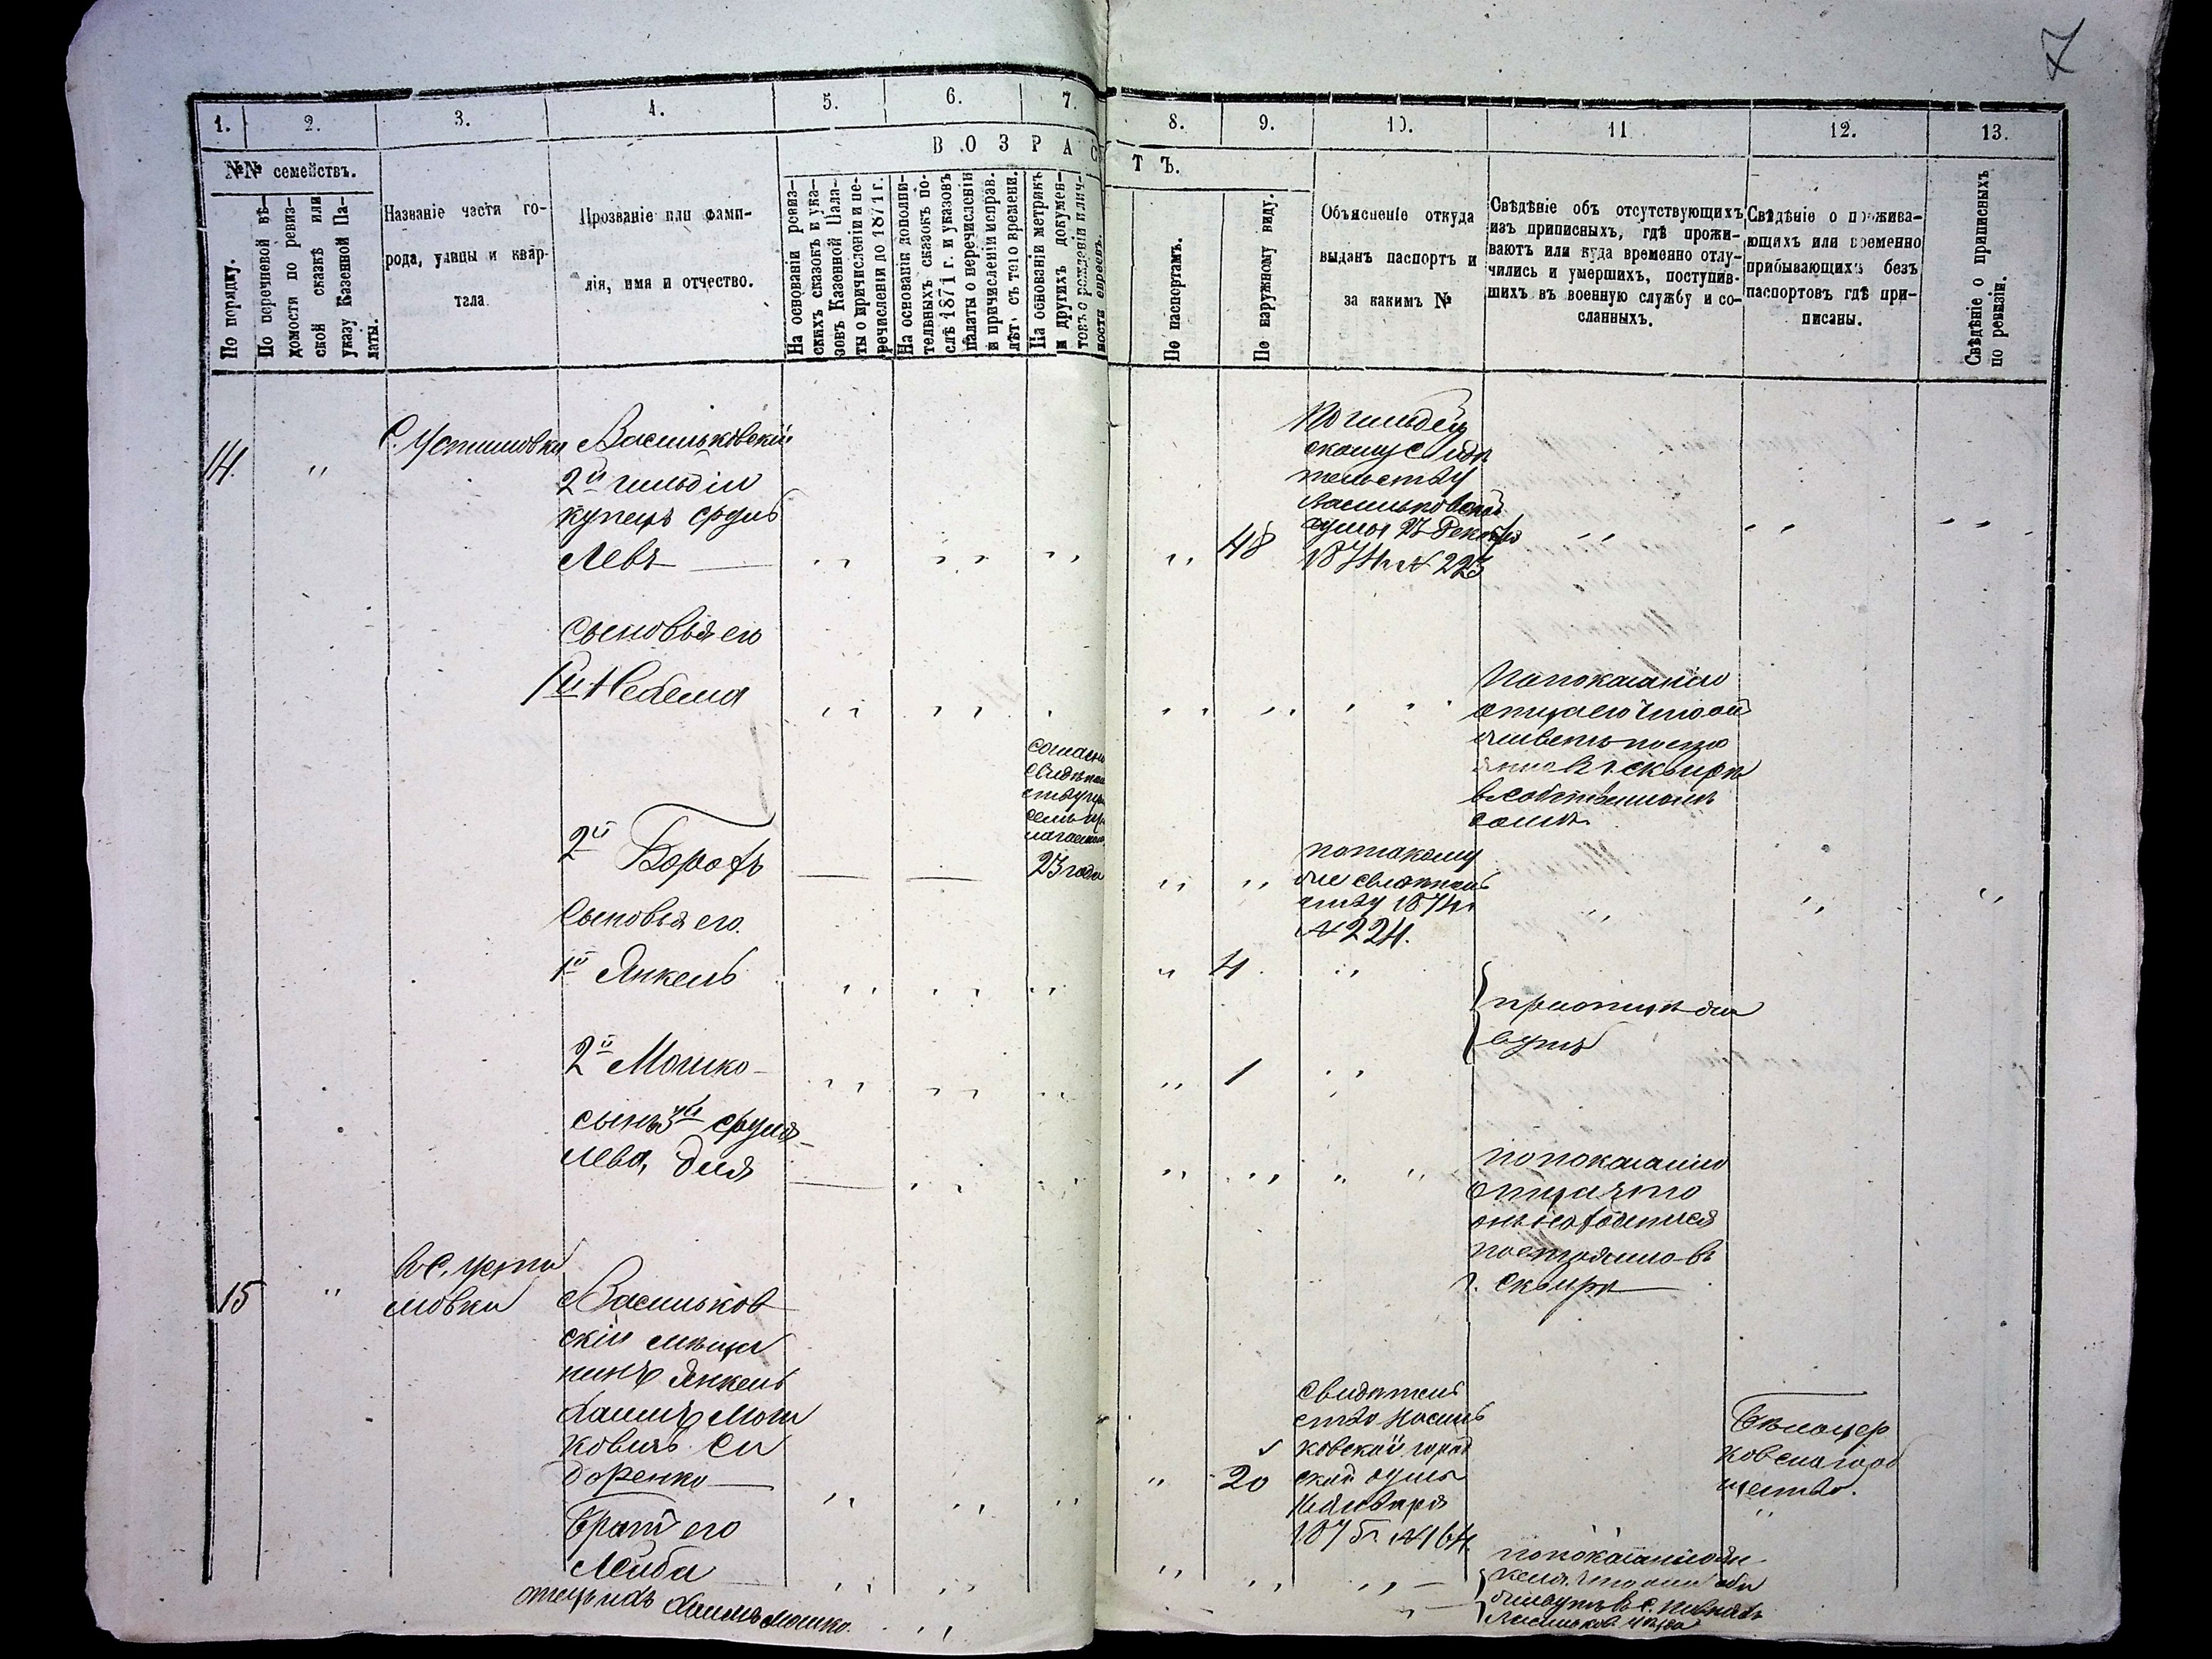 7
1.
2.
3.
4.
5.
6.
7.
8.
9.
10.
11
12.
13.
№№ семействъ.
По порядку.
По перечневой вѣ-
домости по ревиз-
ской сказкѣ или
указу Казенной Па-
латы.
Названіе части го-
рода, улицы и квар-
тала.
Прозваніе или фами-
лія, имя и отчество.
В О З Р А С
Т Ъ.
На основаніи ревиз-
скихъ сказокъ и ука-
зовъ Казенной Пала-
ты о причисленіи и пе-
речисленіи до 1871 г.
На основаніи дополни-
тельныхъ сказокъ по-
слѣ 1871 г. и указовъ
палаты о перечисленіи
и причисленіи исправ.
лѣтъ съ того времени.
На основаніи метрикъ
и другихъ докумен-
товъ о рожденіи и лич-
ности евреевъ.
По паспортамъ.
По наружному виду.
Объясненіе откуда
выданъ паспортъ и
за какимъ №
Свѣдѣніе объ отсутствующихъ
изъ приписныхъ, гдѣ прожи-
ваютъ или куда временно отлу-
чились и умершихъ, поступив-
шихъ въ военную службу и со-
сланныхъ.
Свѣдѣніе о прожива-
ющихъ или временно
прибывающихъ безъ
паспортовъ гдѣ при-
писаны.
Свѣдѣніе о приписныхъ
по ревизіи.
14.
"
С. Устимовка
Васильковскій
2й гильдіи
купецъ Сруль
Левъ
" " " "
48
По гильдей
скому свидѣ
тельству
Васильковской
думы 23 Декабря
1874 г № 223
" " "
Сыновья его
1й
По показанію
отца его что онъ
живетъ посто
янно в г. Сквирѣ
в собственномъ
домѣ.
2й Борохъ
согласно
свидѣтель
ству
23 года
" "
по такому
же свидѣтель
ству 1874 г
№ 224.
" " "
Сыновья его.
1й Янкель
" " " "
4
"
при отцѣ жи
вутъ
2й Мошко
" " " "
1
"
сынъ 3й Сруля
Лева,
" " " " " "
По показанію
отца что
онъ находится
постоянно въ
г. Сквирѣ
15
"
В С. Усти
мовки
Васильков
скій мѣща
нинъ Янкель
Хаимъ Мош
ковичъ Си
доренко
" " " "
20
свидѣтель
ство Василь
ковской город
ской думы
Января
1875 г. № 164
Бѣлоцер
ковскаго об
щества.
"
Братъ его
Лейба
" " " " "
отецъ ихъ Хаимъ Мошко.
"
По показанію Ян
келя что они оба
живутъ в с.
Васильков. уѣзда